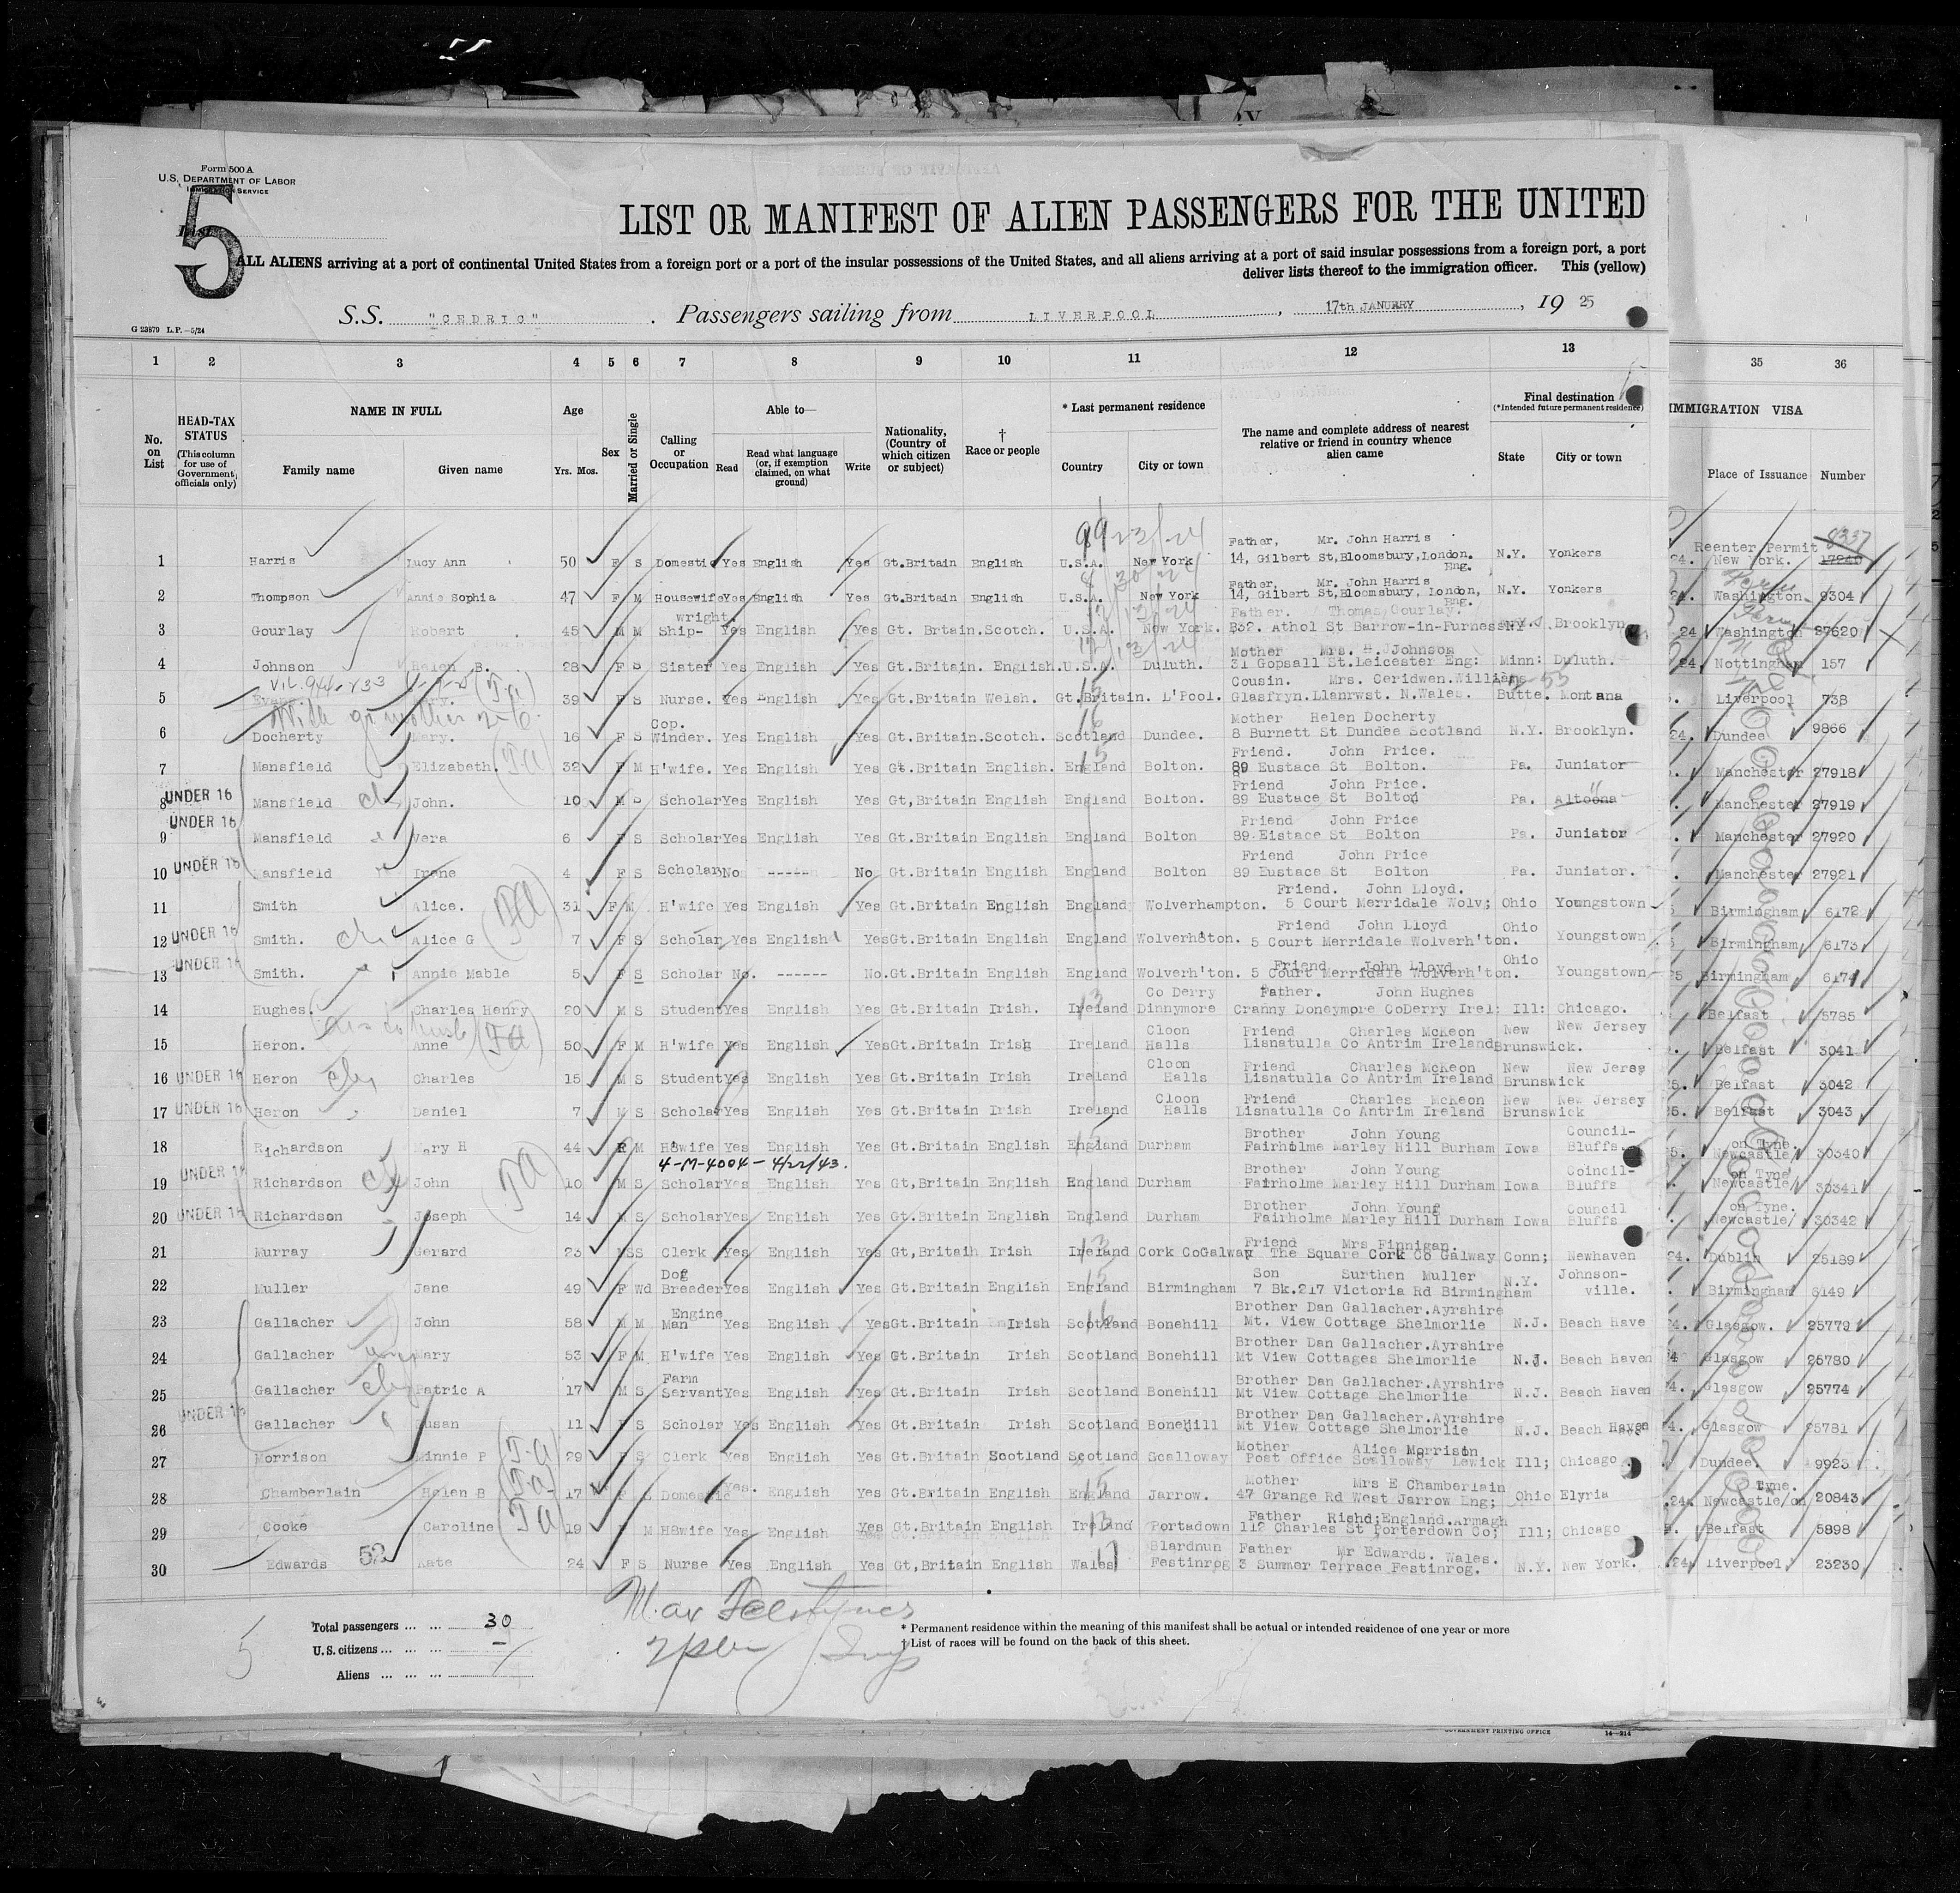 Form 500 A
U.S. DEPARTMENT OF LABOR
IMMIGRATION SERVICE
5
LIST OR MANIFEST OF ALIEN PASSENGERS FOR THE UNITED
ALL ALIENS arriving at a port of continental United States from a foreign port or a port of the insular possessions of the United States, and all aliens arriving at a port of said insular possessions from a foreign port, a port
deliver lists thereof to the immigration officer. This (yellow)
S.S. "CEDRIC". Passengers sailing from LIVERPOOL, 17th JANUERY, 19 25
G 23879 L.P.—5/24
1 2 3 4 5 6 7 8 9 10 11 12 13 35 36
No. on List
HEAD-TAX STATUS (This column for use of Government officials only)
NAME IN FULL
Family name Given name
Age Yrs. Mos.
Sex
Married or Single
Calling or Occupation
Able to—
Read Read what language (or, if exemption claimed, on what ground) Write
Nationality, (Country of which citizen or subject)
† Race or people
* Last permanent residence
Country City or town
The name and complete address of nearest relative or friend in country whence alien came
Final destination (*Intended future permanent residence)
State City or town
IMMIGRATION VISA
Place of Issuance Number
1 Harris Lucy Ann 50 F S Domestic Yes English Yes Gt.Britain English U.S.A. New York Father, Mr. John Harris 14, Gilbert St,Bloomsbury,London. Eng. N.Y. Yonkers 24. Reenter Permit New York. 17240 8337
2 Thompson Annie Sophia 47 F M Housewife Yes English Yes Gt.Britain English U.S.A. New York Father, Mr. John Harris 14, Gilbert St,Bloomsbury, London, Eng. N.Y. Yonkers 24. Washington 9304
3 Gourlay Robert 45 M M Ship-wright. Yes English Yes Gt. Brtain. Scotch. U.S.A. New York. Father. Thomas Gourlay. 332. Athol St Barrow-in-Furness NY. Brooklyn 24 Washington 27620
4 Johnson Helen B. 28 F Sister Yes English Yes Gt.Britain. English. U.S.A. Duluth. Mother Mrs. H. Johnson 31 Gopsall St.Leicester Eng: Minn: Duluth. 24. Nottingham 157
5 39 F S Nurse. Yes English Yes Gt.Britain Welsh. Gt.Britain. L'Pool. Cousin. Mrs. Ceridwen.Williams Glasfryn.Llanrwst. N.Wales. Butte. Montana 5. Liverpool 738
With
6 Docherty Mary. 16 F S Cop. Winder. Yes English Yes Gt.Britain. Scotch. Scotland Dundee. Mother Helen Docherty 8 Burnett St Dundee Scotland N.Y. Brooklyn. 24. Dundee 9866
7 Mansfield Elizabeth. 32 F M H'wife. Yes English Yes Gt.Britain English. England Bolton. Friend. John Price. 89 Eustace St Bolton. Pa. Juniator Manchester 27918
8 UNDER 16 Mansfield John. 10 M Scholar Yes English Yes Gt,Britain English England Bolton. Friend John Price. 89 Eustace St Bolton Pa. Altoona Manchester 27919
9 UNDER 16 Mansfield Vera 6 F S Scholar Yes English Yes Gt.Britain English England Bolton Friend John Price 89.Eistace St Bolton Pa. Juniator Manchester 27920
10 UNDER 16 Mansfield Irene 4 F S Scholar No ----- No Gt.Britain English England Bolton Friend John Price 89 Eustace St Bolton Pa. Juniator. Manchester 27921
11 Smith Alice. 31 F M H'wife Yes English Yes Gt.Britain English England Wolverhampton. Friend. John Lloyd. 5 Court Merridale Wolv; Ohio Youngstown Birmingham 6172
12 UNDER 16 Smith. Alice G 7 F S Scholar Yes English Yes Gt.Britain English England Wolverh'ton. Friend John Lloyd 5 Court Merridale Wolverh'ton. Ohio Youngstown Birmingham 6173
13 UNDER 16 Smith. Annie Mable 5 F S Scholar No. ------ No. Gt.Britain English England Wolverh'ton. Friend John Lloyd 5 Court Merridale Wolverh'ton. Ohio Youngstown 25 Birmingham 6174
14 Hughes. Charles Henry 20 M S Student Yes English Yes Gt.Britain Irish. Ireland Co Derry Dinnymore Father. John Hughes Cranny Doneymore CoDerry Irel: Ill: Chicago. Belfast 5785
15 Heron. Anne 50 F M H'wife Yes English Yes Gt.Britain Irish Ireland Cloon Halls Friend Charles McKeon Lisnatulla Co Antrim Ireland New Brunswick. New Jersey Belfast 3041
16 UNDER 16 Heron Charles 15 M S Student Yes English Yes Gt.Britain Irish Ireland Cloon Halls Friend Charles McKeon Lisnatulla Co Antrim Ireland New Brunswick New Jersy 25. Belfast 3042
17 UNDER 16 Heron Daniel 7 M S Scholar Yes English Yes Gt.Britain Irish Ireland Cloon Halls Friend Charles McKeon Lisnatulla Co Antrim Ireland New Brunswick New Jersey 25. Belfast 3043
18 Richardson Mary H 44 F M H8wife Yes English Yes Gt.Britain English England Durham Brother John Young Fairholme Marley Hill Burham Iowa Council-Bluffs. 25. on Tyne. Newcastle/ 30340
4-M-4004 - 4/22/43.
19 UNDER 16 Richardson John 10 M S Scholar Yes English Yes Gt,Britain English England Durham Brother John Young Fairholme Marley Hill Durham Iowa Coincil-Bluffs on Tyne Newcastle/ 30341
20 UNDER 16 Richardson Joseph 14 M S Scholar Yes English Yes Gt.Britain English England Durham Brother John Young Fairholme Marley Hill Durham Iowa Council Bluffs on Tyne. Newcastle/ 30342
21 Murray Gerard 23 M S Clerk Yes English Yes Gt,Britain Irish Ireland Cork CoGalway Friend Mrs Finnigan. The Square Cork Co Galway Conn; Newhaven 24. Dublin 25189
22 Muller Jane 49 F Wd Dog Breeder Yes English Yes Gt.Britain English England Birmingham Son Surthen Muller 7 Bk.217 Victoria Rd Birmingham N.Y. Johnson-ville. Birmingham 6149
23 Gallacher John 58 M M Engine Man Yes English Yes Gt.Britain Irish Scotland Bonehill Brother Dan Gallacher.Ayrshire Mt. View Cottage Shelmorlie N.J. Beach Have 24. Glasgow. 25779
24 Gallacher Mary 53 F M H'wife Yes English Yes Gt.Britain Irish Scotland Bonehill Brother Dan Gallacher.Ayrshire Mt View Cottages Shelmorlie N.J. Beach Haven 24 Glasgow 25780
25 Gallacher Patric A 17 M S Farm Servant Yes English Yes Gt.Britain Irish Scotland Bonehill Brother Dan Gallacher.Ayrshire Mt View Cottage Shelmorlie N.J. Beach Haven 24. Glasgow 25774
26 UNDER 16 Gallacher Susan 11 F S Scholer Yes English Yes Gt.Britain Irish Scotland Bonehill Brother Dan Gallacher.Ayrshire Mt View Cottage Shelmorlie N.J. Beach Haven 24. Glasgow 25781
27 Morrison Minnie P 29 F S Clerk Yes English Yes Gt.Britain Scotland Scotland Scalloway Mother Alice Morrison Post Office Scalloway Lewick Ill; Chicago. Dundee. 9923
28 Chamberlain Helen B 17 F Domestic Yes. English Yes Gt.Britain English England Jarrow. Mother Mrs E Chamberlain 47 Grange Rd West Jarrow Eng; Ohio Elyria 24. Tyne. Newcastle/on 20843
29 Cooke Caroline 19 F M H8wife Yes English Yes Gt.Britain English Ireland Portadown Father Richd;England.Armagh 112 Charles St Porterdown Co; Ill; Chicago Belfast 5898
30 Edwards 52 Kate 24 F S Nurse Yes English Yes Gt,Britain English Wales Blardnun Festinrog Father Mr Edwards. Wales. 3 Summer Terrace Festinrog. N.Y. New York. 24 Liverpool. 23230
Total passengers ... ... 30
U.S. citizens ... ... —
Aliens ... ... ...
5
* Permanent residence within the meaning of this manifest shall be actual or intended residence of one year or more
† List of races will be found on the back of this sheet.
GOVERNMENT PRINTING OFFICE 14—214